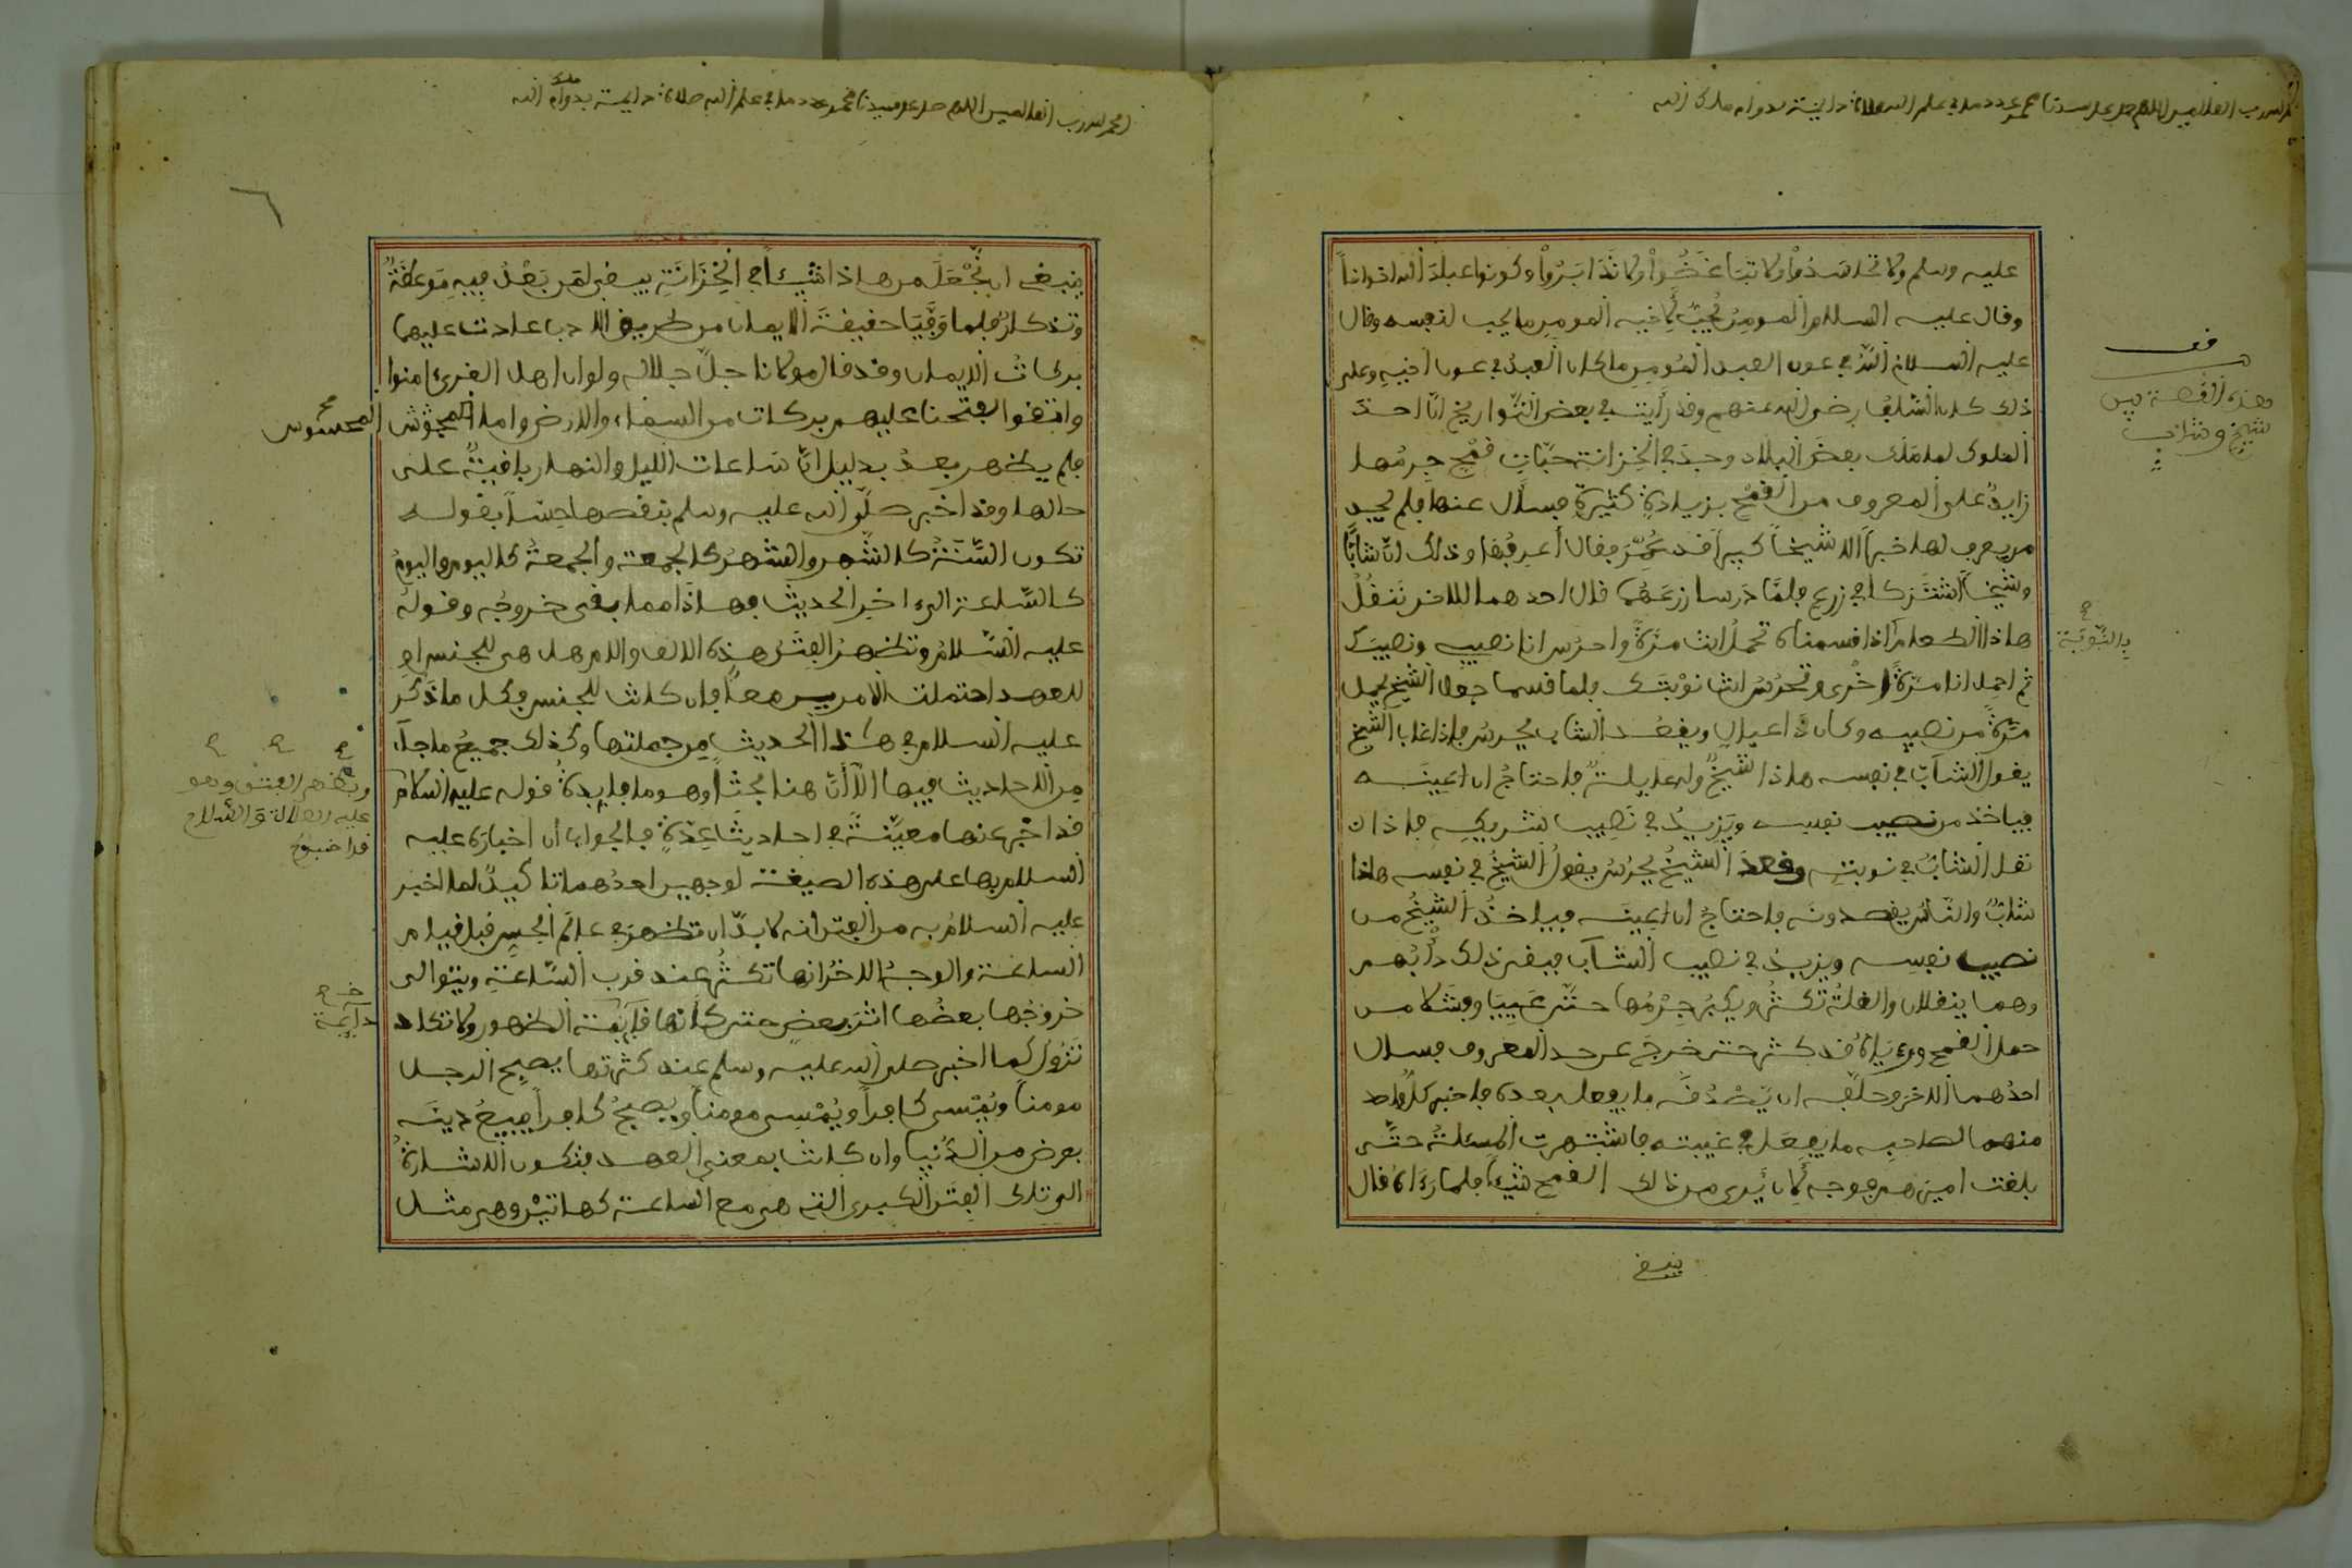 الحمد لله رب العالمين اللهم صل على سيدنا محمد عدد ما في علم الله صلاة دائمة بدوام ملك الله
عليه وسلم ولا تحاسدوا ولا تباغضوا ولا تدابروا وكونوا عباد الله اخوانا
وقال عليه السلام المومن يحب لاخيه المومن ما يحب لنفسه وقال
عليه السلام الله في عون العبد المومن ما كان العبد في عون اخيه وعلى
ذلك كان السلف رضي الله عنهم وقد رأيت في بعض التواريخ ان احد
الملوك لما ملك بعض البلاد وجد في الخزانة حبات قمح جرمها
زايد على المعروف من القمح بزيادة كثيرة فسال عنها فلم يجد
من يعرف لها خبرا الا شيخا كبيرا قد عمر فقال أعرفها وذلك ان شابا
وشيخا اشتركا في زرع فلما درسا زرعهما قال احدهما للاخر ننقل
هاذا الطعام اذا قسمناه تحمل انت مرة واحرس انا نصيبي ونصيبك
ثم احمل انا مرة اخرى وتحرس انت نوبتك فلما قسما جعل الشيخ يحمل
مرة من نصيبه وكان ذا عيال ويقعد الشاب يحرس فاذا غاب الشيخ
يقول الشاب في نفسه هاذا شيخ وله عايلة فاحتاج ان اعينه
فياخذ من نصيب نفسه ويزيد في نصيب شريكه فاذا ن
نقل الشاب في نوبته وقعد الشيخ يحرس يقول الشيخ في نفسه هاذا
شاب والناس يقصدونه فاحتاج ان اعينه فياخذ الشيخ من
نصيب نفسه ويزيد في نصيب الشاب فبقي ذلك دأبهم
وهما ينقلان والغلة تكثر ويكبر جرمها حتى عييا وفشلا من
حمل القمح ورءياه قد كثر حتى خرج عن حد المعروف فسال
احدهما الاخر وحلفه ان يصدقه ما يفعل بعده فاخبر كل واحد
منهما لصاحبه ما يفعل في غيبته فاشتهرت المسئلة حتى
بلغت امينهم فوجه لان يرى من ذلك القمح شيئا فلما رءاه قال
ينبغي
قف
هذه القصة بين
شيخ وشاب
بالنوبة
الحمد لله رب العالمين اللهم صل على سيدنا محمد عدد ما في علم الله صلاة دايمة بدوام ملك الله
٦
ينبغي ان يجعل من هاذا شيئا في الخزانة يبقى لمن بعد فيه موعظة
وتذكار فلما وفيا حقيقة الايمان من طريق الادب عادت عليهما
بركات الايمان وقد قال مولانا جل جلاله ولو ان اهل القرى امنوا
واتقوا لفتحنا عليهم بركات من السماء والارض واما المحسوس
فلم يظهر بعد بدليل ان ساعات الليل والنهار باقية على
حالها وقد اخبر صلى الله عليه وسلم بنقصها حسا بقوله
تكون السنة كالشهر والشهر كالجمعة والجمعة كاليوم واليوم
كالساعة الى اخر الحديث فهاذا مما بقى خروجه وقوله
عليه السلام وتظهر الفتن هذه الالف واللام هل هي للجنس او
للعهد احتملت الامرين معا فان كانت للجنس فكل ما ذكر
عليه السلام في هذا الحديث من جملتها وكذلك جميع ما جاء
من الاحاديث فيها الا أن هنا بحثا وهو ما فايدة قوله عليه السلام
قد اخبر عنها معينة في احاديث عدة فالجواب ان اخباره عليه
السلام بها على هذه الصيغة لوجهين احدهما تاكيد لما اخبر
عليه السلام به من الفتن انه لا بد ان تظهر في عالم الحس قبل قيام
الساعة والوجه الاخر انها تكثر عند قرب الساعة ويتوالى
خروجها بعضها اثر بعض حتى كأنها قايمة الظهور ولا تكاد
تزول كما اخبر صلى الله عليه وسلم عند كثرتها يصبح الرجل
مومنا ويمسى كافرا ويمسى مومنا ويصبح كافرا يبيع دينه
بعرض من الدنيا وان كانت بمعنى العهد فتكون الاشارة
الى تلك الفتن الكبرى التي هي مع الساعة كهاتين وهي مثل
المحسوس
وتظهر الفتن وهو
عليه الصلاة والسلام
قد اخبر
دايمة